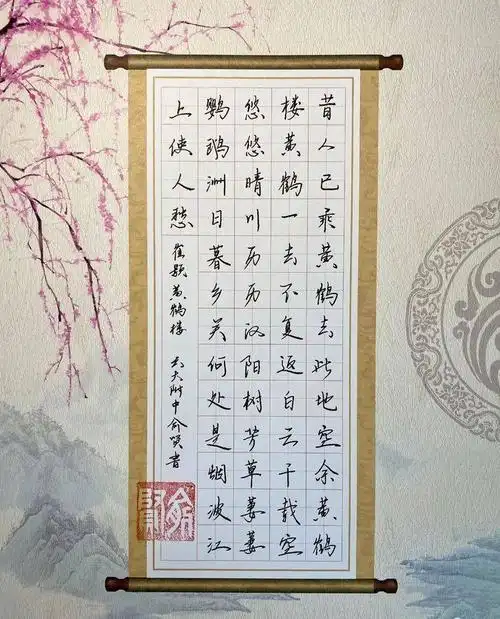 昔人已乘黄鹤去此地空余黄鹤
楼黄鹤一去不复返白云千载空
悠悠晴川历历汉阳树芳草萋萋
鹦鹉洲日暮乡关何处是烟波江
上使人愁 崔颢黄鹤楼 云大附中俞贤书